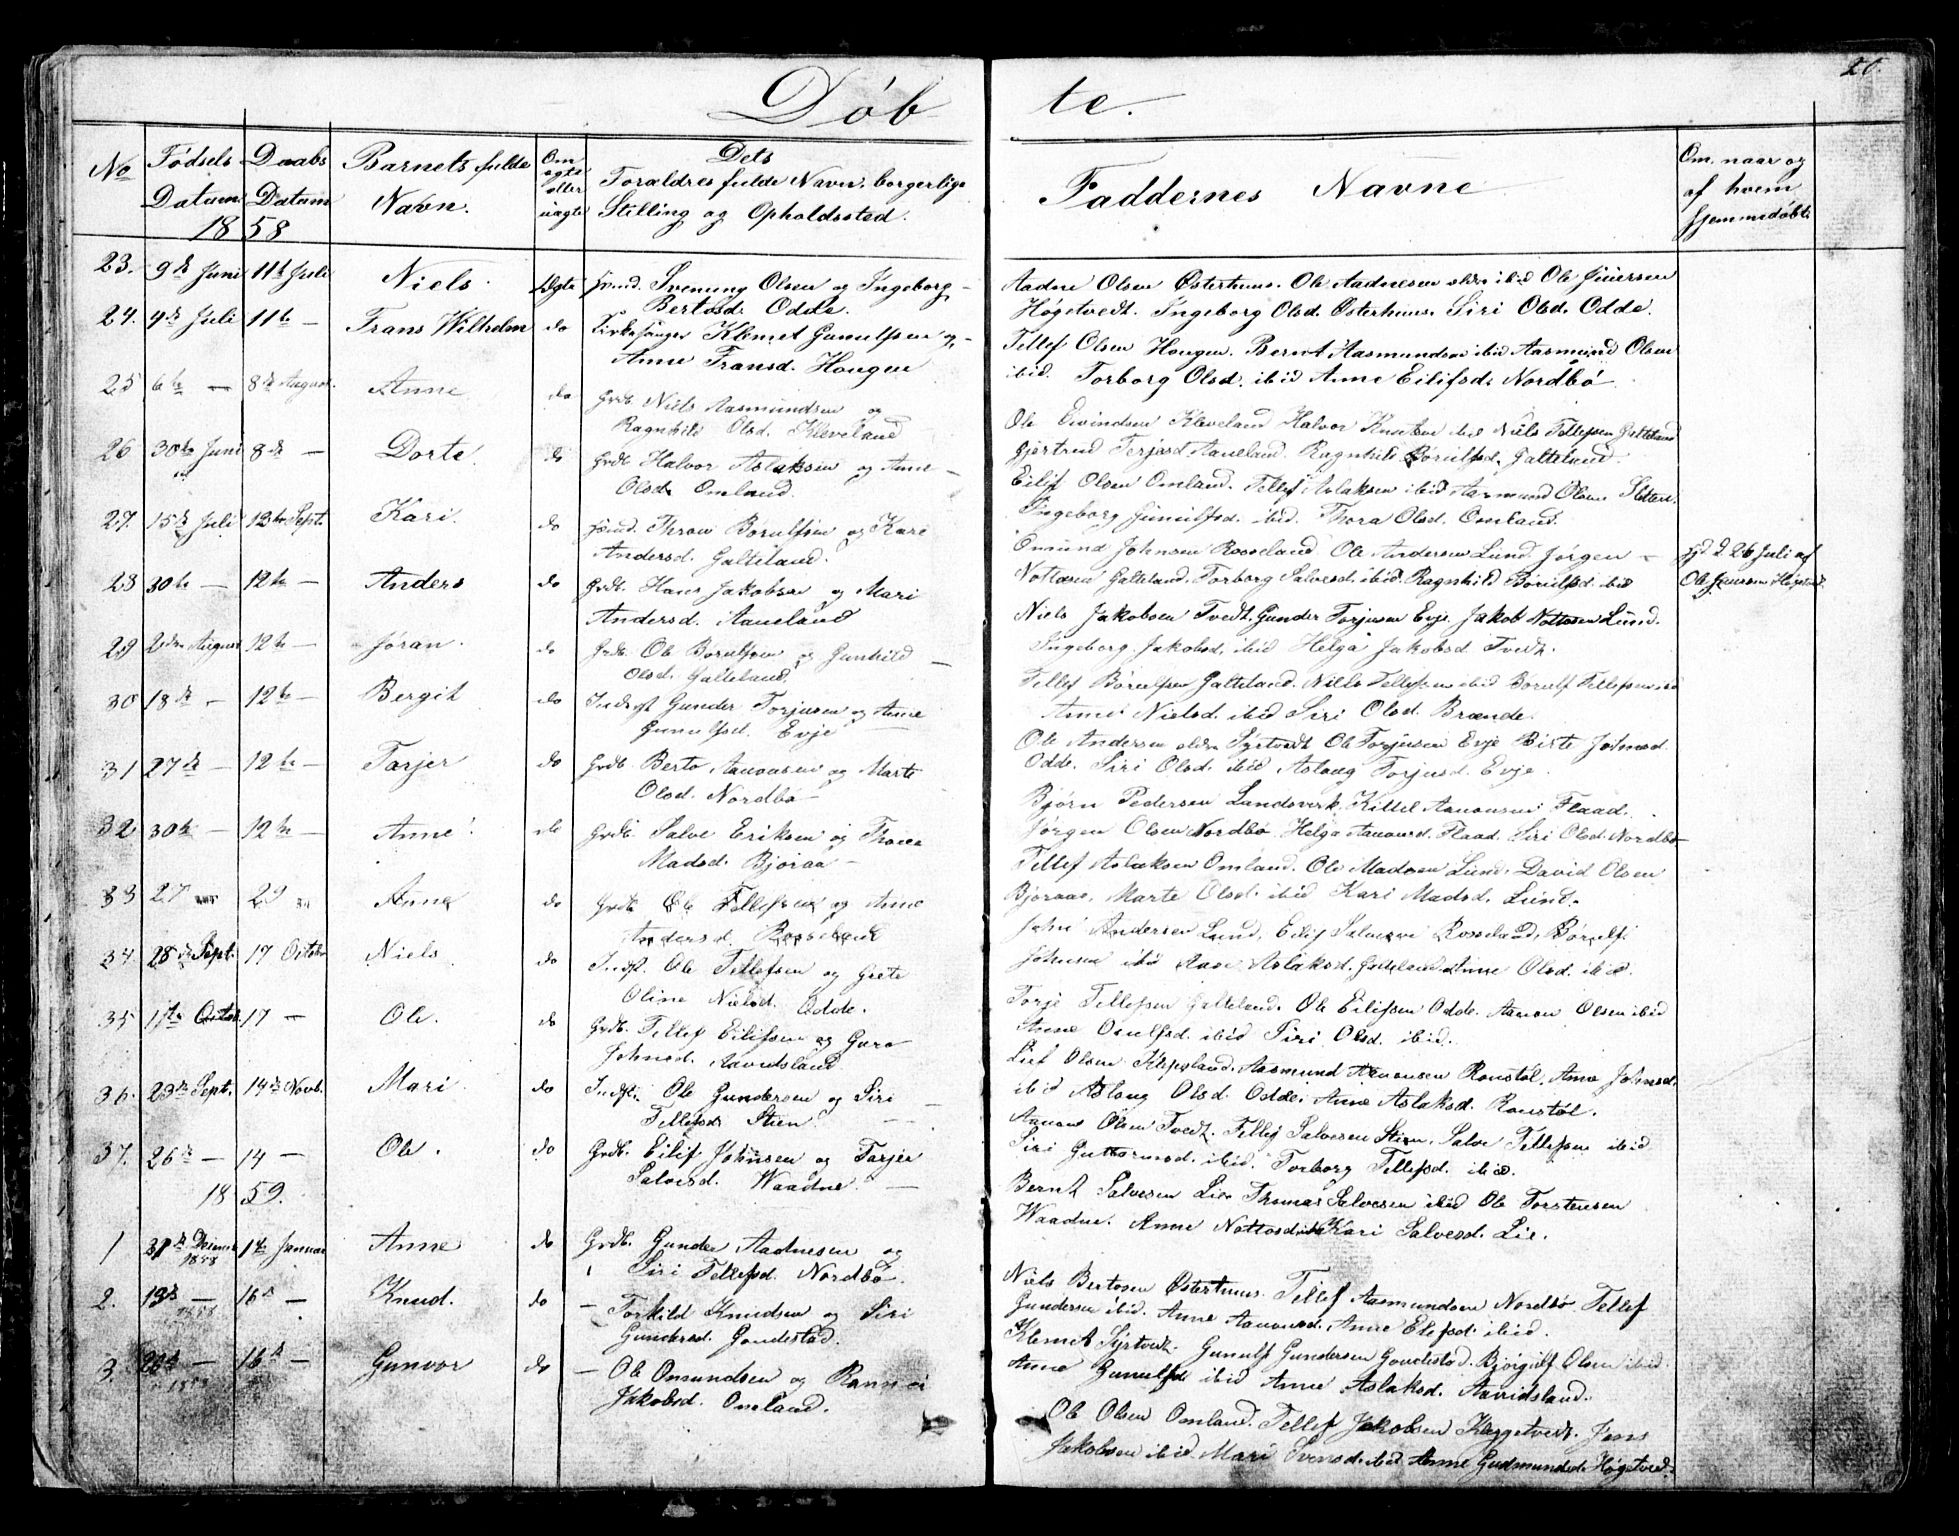 Døbte.
20.
No
Fødsels Datum
Daabs Datum
Barnets fulde Navn.
Om ægte eller uægte
Dets Forældres fulde Navn, borgerlige Stilling og Opholdssted.
Faddernes Navne
Om, naar og af hvem hjemmedøbt
1858
23. 9de Juni 11te Juli Niels. Ægte Svenung Olsen og Ingeborg
Bertosd. Odde.
Aadne Olsen Østerhuus. Ole Aadnesen ældre ibid Ole
Høgetvedt. Ingeborg Olsd. Østerhuus. Siri Olsd. Odde.
24. 4de Juli 11te — Frans Wilhelm do Kirkesanger Klemet Gunulfsen og
Anne Fransd. Hougen
Tellef Olsen Hougen. Bernt Aasmundsen ibid Aasmund Olsen
ibid. Torborg Olsd. ibid Anne Eilifsd. Nordbø
25 6te — 8de August Anne do Grdb. Niels Aasmundsen og
Ragnhild Olsd. Kleveland
Ole Eivindsen Kleveland Halvor ibid Niels Tellefsen Galteland
Gjertrud Terjesd. Aaneland. Ragnhild Borulfsd. Galteland.
26 30te Juni 8de — Dorte. do Grdb. Halvor Aslaksen og Anne
Olsd. Omland.
Eilif Olsen Omland. Tellef Aslaksen ibid Aasmund Olsen
Ingeborg Gunulfsd. ibid. Thora Olsd. Omland.
27. 15de Juli 12te Sept. Kari. do Thron Borulfsen og Kari
Andersd. Galteland.
Omund Johnsen Rosseland Ole Andersen Lund Jørgen
Nottosen Galteland. Torborg Salvesd. ibid. Ragnhild Borulfsd. ibid
hjd. d. 26 Juli af
Ole Høgetvedt
28 30te — 12te — Anders do Grdb. Hans Jakobsen og Mari
Andersd. Aaneland
Niels Jakobsen Tvedt. Gunder Torjusen Evje. Jakob Nottosen Lund.
Ingeborg Jakobsd. ibid Helga Jakobsd. Tvedt.
29 2den August 12te — Jøran. do Grdb. Ole Borulfsen og Gunhild
Olsd. Galteland.
Tellef Børulfsen Galteland. Niels Tellefsen ibid Borulf Tellefsen ibid
Anne Nielsd. ibid Siri Olsd. Brænde.
30 18de — 12te — Bergit do Indst Gunder Torjusen og Anne
Gunulfsd. Evje
Ole Andersen ældre Syrtvedt Ole Torjusen Evje Birte Johnsd.
Odde. Siri Olsd. ibid. Aslaug Torjusd. Evje.
31 27de — 12te — Tarjer do Grdb. Berto Aanonsen og Marte
Olsd. Nordbø
Bjørn Pedersen Landsverk. Kittel Aanonsen Flaad.
Jørgen Olsen Nordbø Helga Aanonsd. Flaad. Siri Olsd. Nordbø
32 30te — 12te — Anne. do Grdb. Salve Eriksen og Thora
Madsd. Bjoraa
Tellef Aslaksen Omland. Ole Madsen Lund. David Olsen
Bjoraa, Marte Olsd. ibid Kari Madsd. Lund.
33 27 — 29 — Anne do Grdb Ole Tellefsen og Anne
Andersd. Rosseland
John Andersen Lund. Eilif Salvesen Rosseland, Børulf
Johnsen ibid Aase Aslaksd. Galteland Anne Olsd. ibid.
34. 28de Sept. 17 October Niels do Indst. Ole Tellefsen og Grete
Oline Nielsd. Odde.
Torje Tellefsen Galteland. Ole Eilifsen Odde. Aanon Olsen ibid
Anne Onulfsd. ibid Siri Olsd. ibid.
35 11te Octob. 17 — Ole. do Grdb. Tellef Eilifsen og Guro
Johnsd. Aavidsland
Lief Olsen Klepsland. Aasmund Aanonsen Ronstøl. Anne Johnsd.
ibid Aslaug Olsd. Odde. Anne Aslaksd. Ronstøl.
36. 23de Sept. 14de Novb. Mari do Indst. Ole Gundersen og Siri
Tellefsd. Stien
Aanon Olsen Tvedt. Tellef Salvesen Stien. Salve Tellefsen ibid
Siri Guttormsd. ibid. Torborg Tellefsd. ibid.
37. 26de — 14 — Ole. do Grdb. Eilif Johnsen og Tarjer
Salvesd. Waadne.
Bernt Salvesen Lie Thomas Salvesen ibid Ole Torstensen
Waadne. Anne Nottosd. ibid Kari Salvesd. Lie.
1859.
1 31te Decemb 1858 14de Januar Anne do Grdb. Gunder Aadnesen og
Siri Tellefsd. Nordbø.
Niels Bertosen Østerhuus. Tellef Aasmundsen Nordbø Tellef
Gundersen ibid. Anne Aanonsd. Anne Eilefsd. ibid.
2. 13de — 1858 16de — Knud. do — Torkild Knudsen og Siri
Gundersd. Goudestad.
Klemet Syrtvedt. Gunulf Gundersen Goudestad. Bjørgulf Olsen ibid.
Anne Gunulfsd ibid Anne Aslaksd. Aavidsland.
3. — 1858 16de — Gunvor do — Ole Omundsen og
Jakobsd. Omland.
Ole Olsen Omland. Tellef Jakobsen Jens
Jakobsen ibid Mari Svensd. ibid Anne Gudmundsd. Høgetvedt